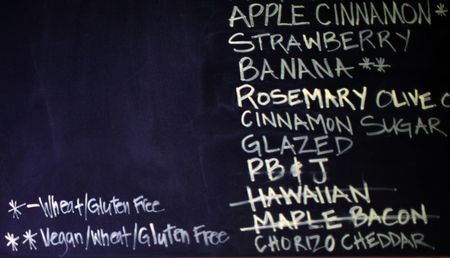 APPLE CINNAMON*
STRAWBERRY
BANANA**
ROSEMARY OLIVE
CINNAMON SUGAR
GLAZED
PB & J
HAWAIIAN
MAPLE BACON
CHORIZO CHEDDAR
* - Wheat/Gluten Free
** Vegan/Wheat/Gluten Free